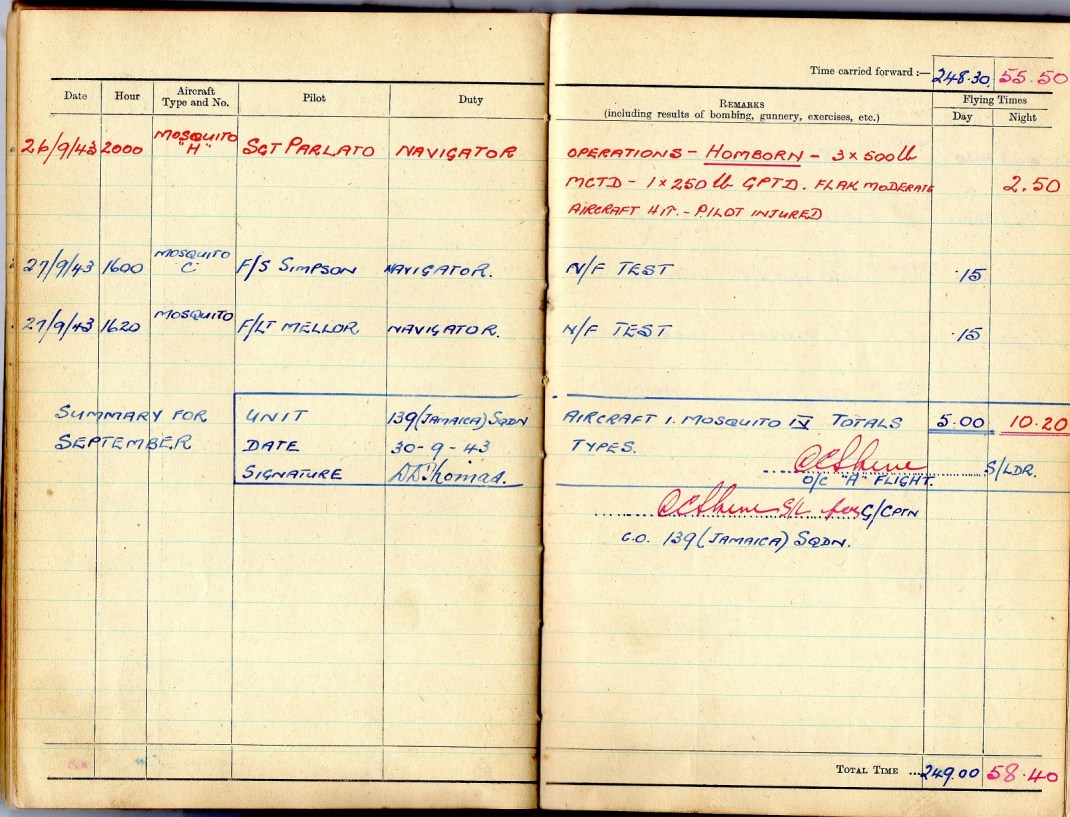 Time carried forward :— 248.30 55.50
Date Hour Aircraft Type and No. Pilot Duty
REMARKS (including results of bombing, gunnery, exercises, etc.) Flying Times Day Night
26/9/43 2000 MOSQUITO "H" SGT PARLATO NAVIGATOR
OPERATIONS - HOMBORN - 3 x 500 lb
MCTD - 1 x 250 lb GPTD. FLAK MODERATE 2.50
AIRCRAFT HIT. - PILOT INJURED
27/9/43 1600 MOSQUITO C F/S SIMPSON NAVIGATOR. N/F TEST .15
27/9/43 1620 MOSQUITO F/LT MELLOR NAVIGATOR. N/F TEST .15
SUMMARY FOR UNIT 139 (JAMAICA) SQDN AIRCRAFT 1. MOSQUITO IV TOTALS 5.00 10.20
SEPTEMBER DATE 30-9-43 TYPES.
SIGNATURE DD Thomas. S/LDR.
O/C "A" FLIGHT.
S/L for G/CPTN
C.O. 139 (JAMAICA) SQDN.
TOTAL TIME ... 249.00 58.40